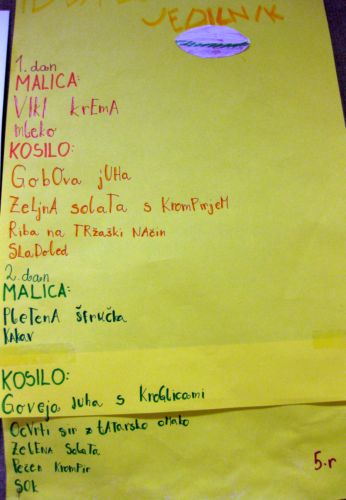 JEDILNIK
1. dan
MALICA:
VIKI KrEMA
mleko
KOSILO:
GobOva jUHa
ZeljnA solaTa s KromPirjeM
Riba na TRžaški NAčin
SLaDoled
2. dan
MALICA:
PleTenA šTručka
KAkav
KOSILO:
Goveja Juha s KroGlicami
OcVrti sir z tATarsko oMako
ZelENa SolaTa
Pečen KromPir
SOK
5.r